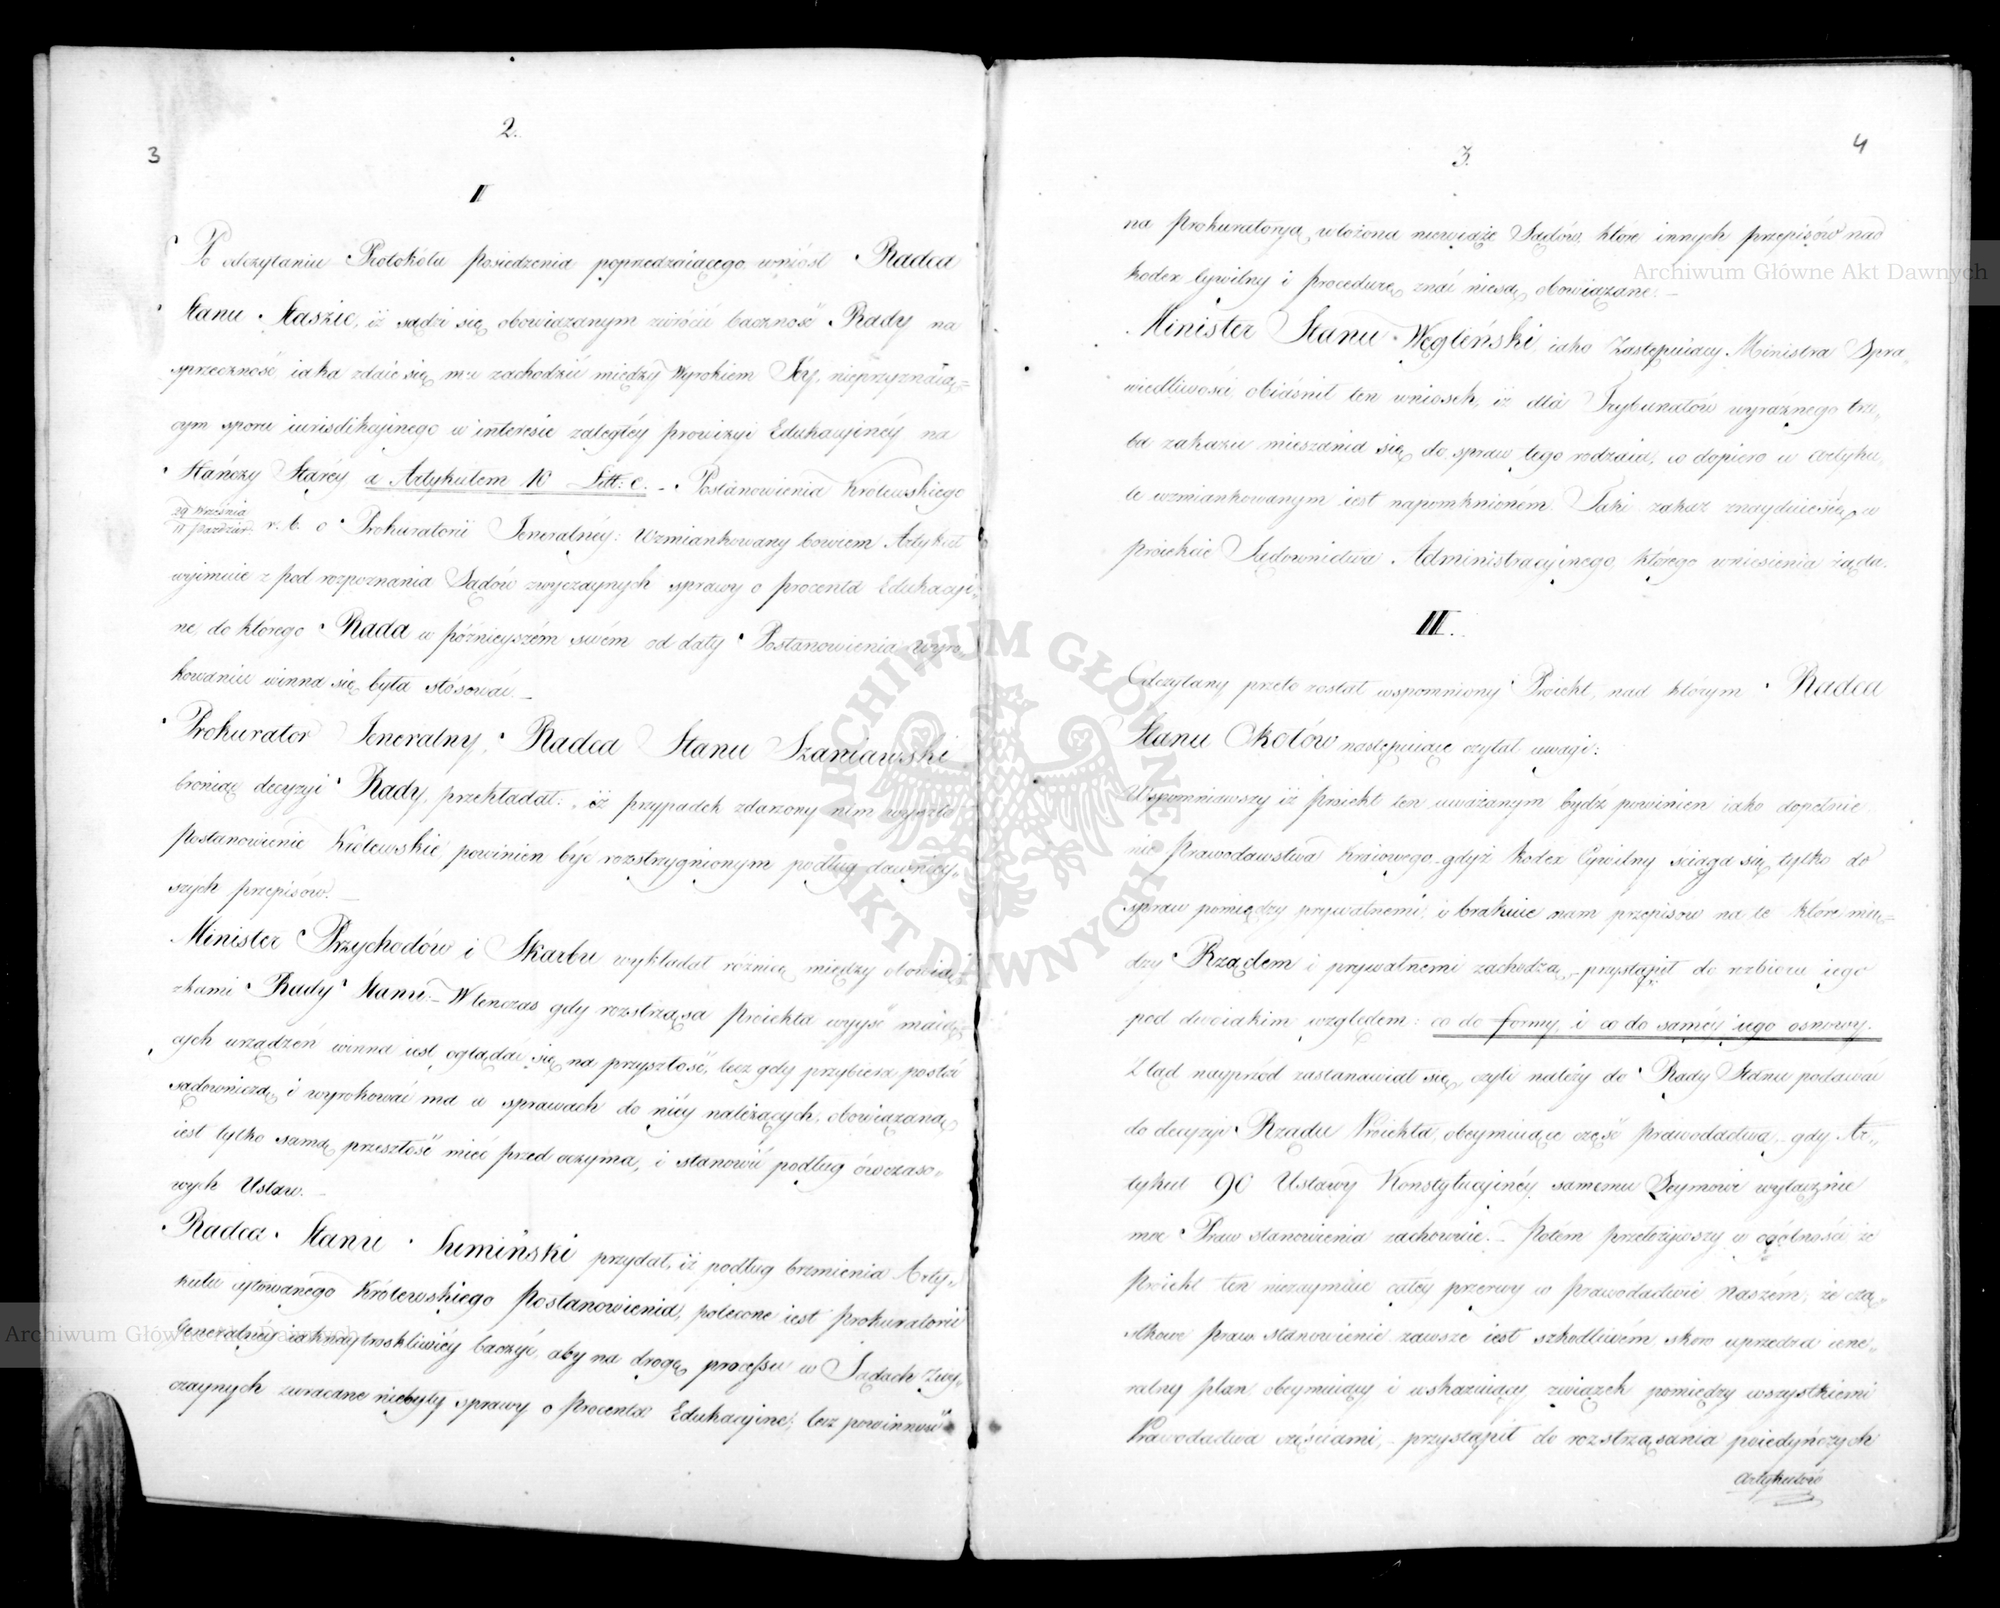 3
2.
II
Po odczytaniu Protokółu posiedzenia poprzedzaiącego wniósł Radca
Stanu Staszic, iż sądzi się obowiązanym zwrócić baczność Rady na
sprzeczność iaka zdaie się mu zachodzić między Wyrokiem Jey, nieprzyznaią=
cym sporu iurisdikcyinego w interesie zaległey prowizyi Edukacyiney na
Stańczy Starey a Artykułem 10 Litt: c. – Postanowienia Królewskiego
29 Września
11 Paździer. r. b. o Prokuratorii Jeneralney: Wzmiankowany bowiem Artykuł
wyimuie z pod rozpoznania Sądów zwyczaynych sprawy o procenta Edukacyi=
ne, do którego Rada w późnieyszém swém od daty Postanowienia wyro
kowaniu winna się była stósować. –
Prokurator Jeneralny, Radca Stanu Szaniawski
broniąc decyzyi Rady, przekładał: iż przypadek zdarzony nim wyszło
Postanowienie Królewskie powinien być rozstrzygnionym podług dawniey=
szych przepisów. –
Minister Przychodów i Skarbu wykładał różnicę między obowią
zkami Rady Stanu: – Wtenczas gdy rozstrząsa Proiekta wyyść maią=
cych urządzeń winna iest oglądać się na przyszłość, lecz gdy przybiera postać
sądowniczą i wyrokować ma w sprawach do niey należących, obowiązaną
iest tylko samą przeszłość mieć przed oczyma, i stanowić podług ówczaso=
wych Ustaw. –
Radca Stanu Sumiński przydał, iż podług brzmienia Arty=
kułu cytowanego Królewskiego Postanowienia, polecone iest Prokuratorii
Generalney iaknaytroskliwiey baczyć, aby na drogę processu w Sądach Zwy=
czaynych zwracane niebyły sprawy o Procenta Edukacyine; lecz powinność
4
3.
na Prokuratoryą włożona niewiąże Sądów, które innych przepisów nad
kodex Cywilny i Procedurę znać niesą obowiązane. –
Minister Stanu Węgleński, iako Zastępuiący Ministra Spra=
wiedliwości obiaśnił ten wniosek, iż dla Trybunałów wyraźnego trze=
ba zakazu mieszania się do spraw tego rodzaiu, co dopiero w Artyku=
le wzmiankowanym iest napomknioném. Taki zakaz znayduie się w
proiekcie Sądownictwa Administracyinego, którego wniesienia żąda.
III.
Odczytany przeto został wspomniony Proiekt, nad którym Radca
Stanu Okołów następuiące czytał uwagi:
Wspomniawszy iż proiekt ten uważanym bydź powinien iako dopełnie
nie Prawodawstwa Kraiowego, gdyż kodex Cywilny ściąga się tylko do
spraw pomiędzy prywatnemi, i brakuie nam przepisów na te które mię=
dzy Rządem i prywatnemi zachodzą, – przystąpił do rozbioru iego
pod dwoiakim względem: co do formy, i co do saméy iego osnowy.
Ztąd nayprzód zastanawiał się, czyli należy do Rady Stanu podawać
do decyzyi Rządu Proiekta, obeymuiące część prawodactwa, – gdy Ar=
tykuł 90 Ustawy Konstytucyiney samemu Seymowi wyłącznie
moc Praw stanowienia zachowuie. – Potém przełożywszy w ogólności że
Proiekt ten niezaymuie całey przerwy w Prawodactwie Naszém; że czą=
stkowe praw stanowienie zawsze iest szkodliwém, skoro uprzedza iene=
ralny plan, obeymuiący i wskazuiący związek pomiędzy wszystkiemi
Prawodactwa częściami, – przystąpił do rozstrząsania poiedyńczych
Artykułów
Archiwum Główne Akt Dawnych
Archiwum Główne Akt Dawnych
ARCHIWUM GŁÓWNE AKT DAWNYCH